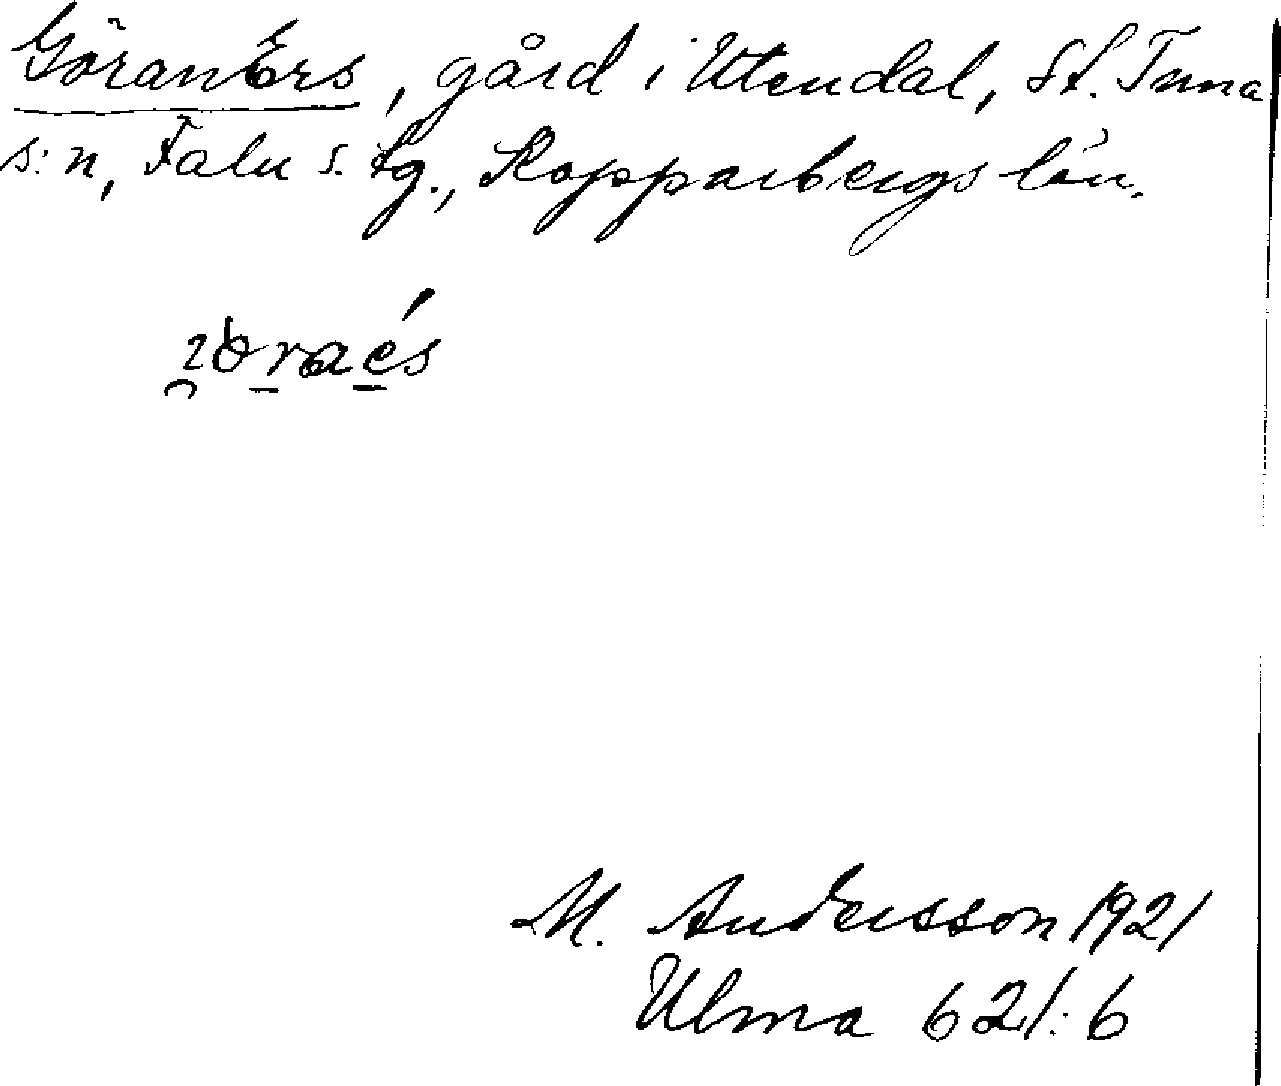 GöranErs, gård i Utendal, St. Tuna
s:n, Falu s. tg., Kopparbergs län.
M. Andersson 1921
Ulma 621:6